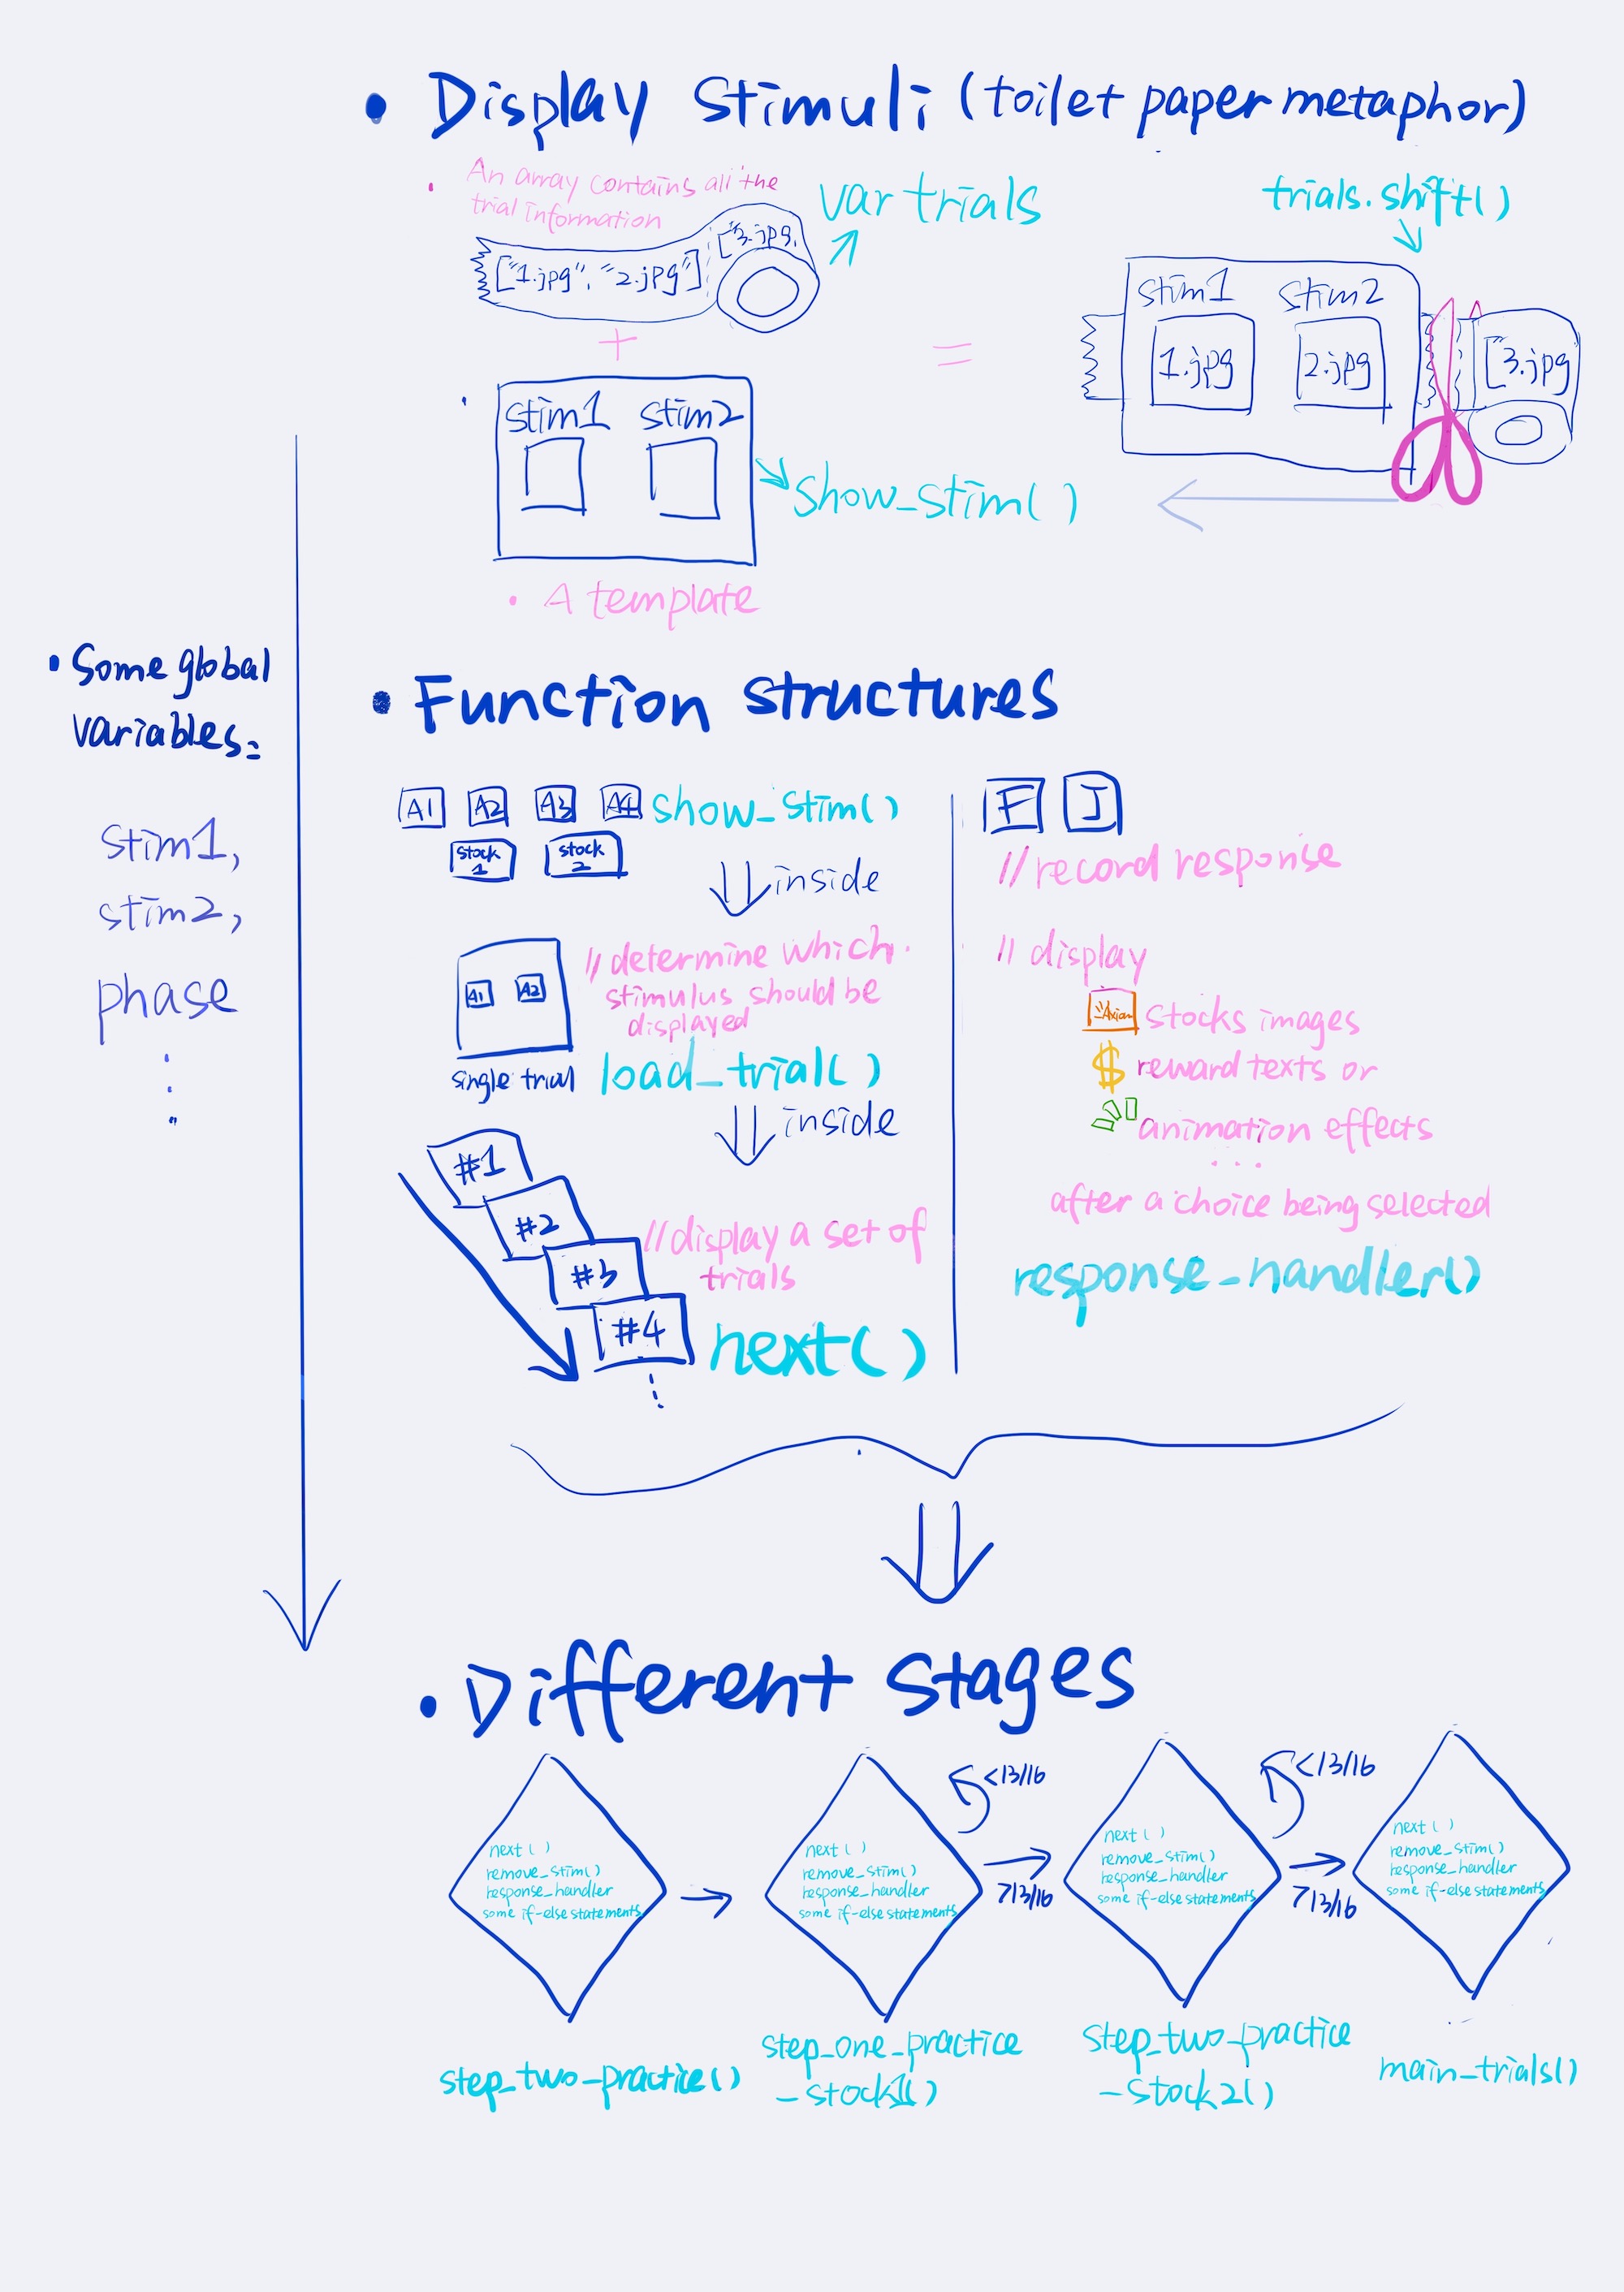 • Display Stimuli (toilet paper metaphor)
• An array contains all the
trial information
var trials
trials.shift()
["1.jpg", "2.jpg"]
["3.jpg,
+
=
stim1 stim2
1.jpg 2.jpg
["3.jpg
stim1 stim2
show_stim( )
• A template
• Some global
variables:
stim1,
stim2,
phase
• Function structures
A1 A2 A3 A4 show_stim( )
stock
1
stock
2
inside
A1 A2
// determine which
stimulus should be
displayed
single trial load_trial( )
inside
#1
#2
#3
#4
// display a set of
trials
next( )
F J
// record response
// display
Axian
stocks images
$ reward texts or
animation effects
...
after a choice being selected
response_handler()
• Different stages
next ( )
remove_stim( )
response_handler
some if-else statements
step_two_practice( )
next ( )
remove_stim( )
response_handler
some if-else statements
step_one_practice
_stock1( )
<13/16
>13/16
next ( )
remove_stim( )
response_handler
some if-else statements
step_two_practice
_stock2( )
<13/16
>13/16
next ( )
remove_stim( )
response_handler
some if-else statements
main_trials( )